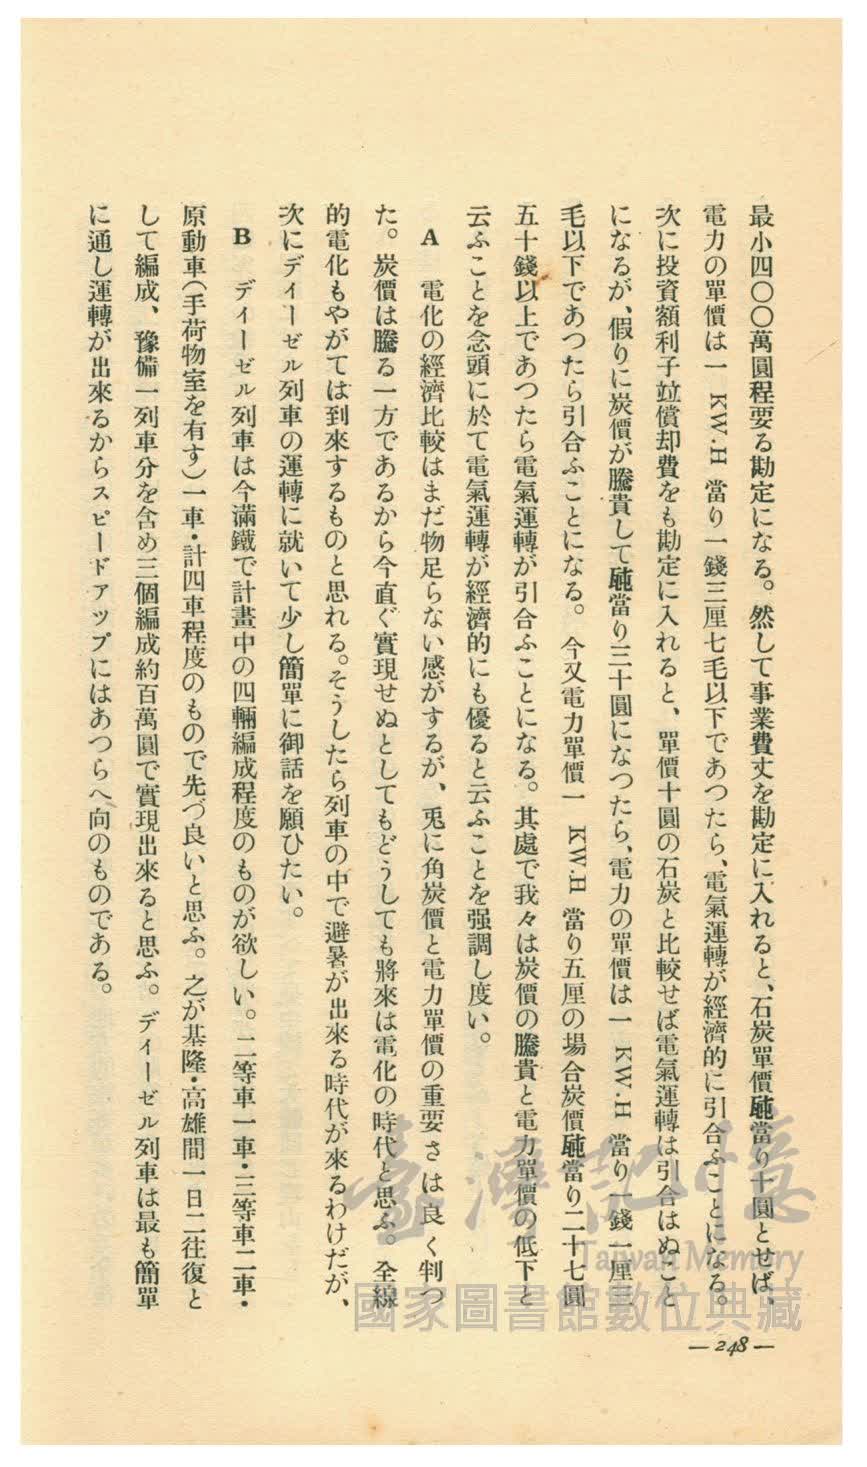 最小四〇〇萬圓程要る勘定になる。然して事業費丈を勘定に入れると、石炭單價瓲當り十圓とせば、
電力の單價は一 KW.H 當り一錢三厘七毛以下であつたら、電氣運轉が經濟的に引合ふことになる。
次に投資額利子竝償却費をも勘定に入れると、單價十圓の石炭と比較せば電氣運轉は引合はぬこと
になるが、假りに炭價が騰貴して瓲當り三十圓になつたら、電力の單價は一 KW.H 當り一錢一厘三
毛以下であつたら引合ふことになる。今又電力單價一 KW.H 當り五厘の場合炭價瓲當り二十七圓
五十錢以上であつたら電氣運轉が引合ふことになる。其處で我々は炭價の騰貴と電力單價の低下と
云ふことを念頭に於て電氣運轉が經濟的にも優ると云ふことを强調し度い。
A 電化の經濟比較はまだ物足らない感がするが、兎に角炭價と電力單價の重要さは良く判つ
た。炭價は騰る一方であるから今直ぐ實現せぬとしてもどうしても將來は電化の時代と思ふ。全線
的電化もやがては到來するものと思れる。そうしたら列車の中で避暑が出來る時代が來るわけだが、
次にディーゼル列車の運轉に就いて少し簡單に御話を願ひたい。
B ディーゼル列車は今滿鐵で計畫中の四輛編成程度のものが欲しい。二等車一車・三等車二車・
原動車(手荷物室を有す)一車・計四車程度のもので先づ良いと思ふ。之が基隆・高雄間一日二往復と
して編成、豫備一列車分を含め三個編成約百萬圓で實現出來ると思ふ。ディーゼル列車は最も簡單
に通し運轉が出來るからスピードアップにはあつらへ向のものである。
— 248 —
臺灣記憶
Taiwan Memory
國家圖書館數位典藏